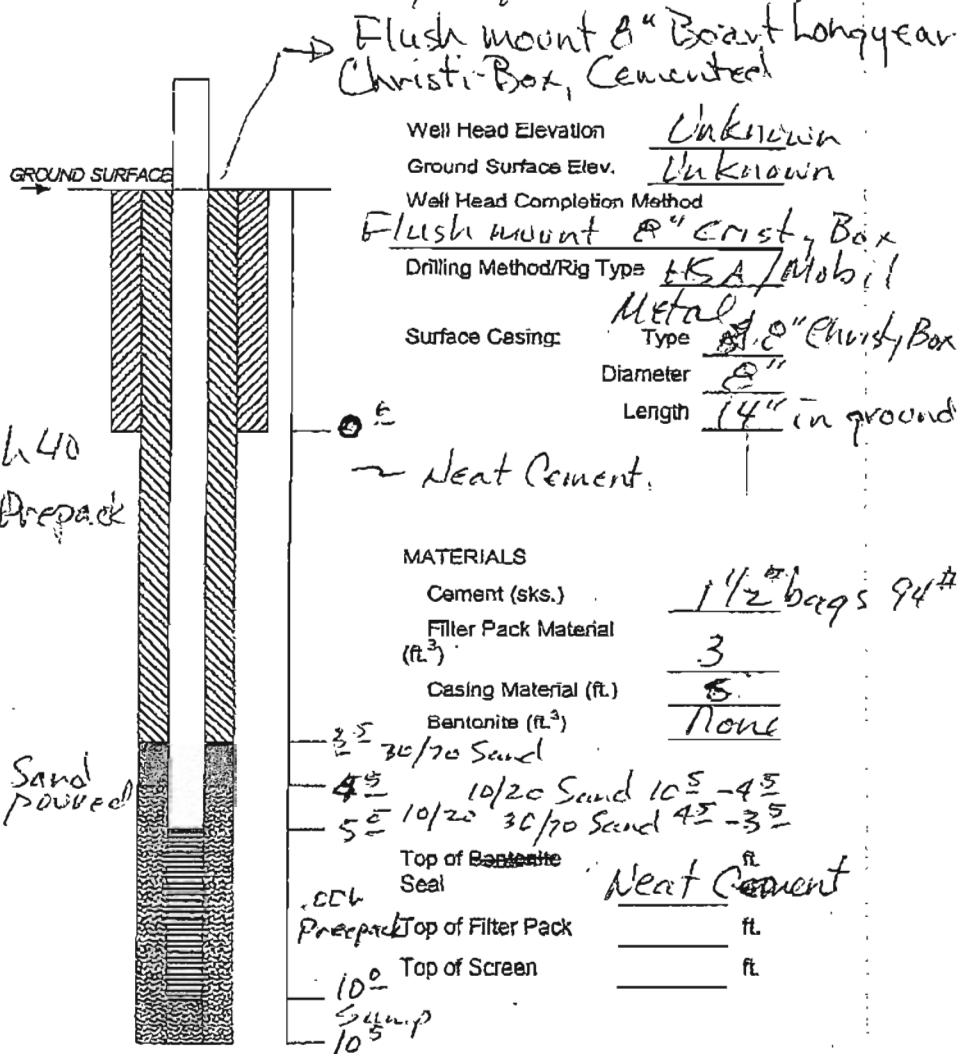 Flush mount 8" Boart Longyear
Christi-Box, Cemented
Well Head Elevation Unknown
GROUND SURFACE
Ground Surface Elev. Unknown
Well Head Completion Method
Flush mount 8" Cristy Box
Drilling Method/Rig Type HSA/Mobil
Metal
Surface Casing: Type 8" Christy Box
Diameter 8"
Length 14" in ground
h 40
Prepack
~ Neat Cement.
MATERIALS
Cement (sks.) 1 1/2 bags 94#
Filter Pack Material
(ft.³) 3
Casing Material (ft.) 5
Bentonite (ft.³) None
3 5 30/70 Sand
Sand
poured
4 5 10/20 Sand 10 5 - 4 5
5 0 10/20 30/70 Sand 4 5 - 3 5
Top of Bentonite ft.
Seal Neat Cement
Prepack Top of Filter Pack ft.
Top of Screen ft.
10 0
Sump
10 5